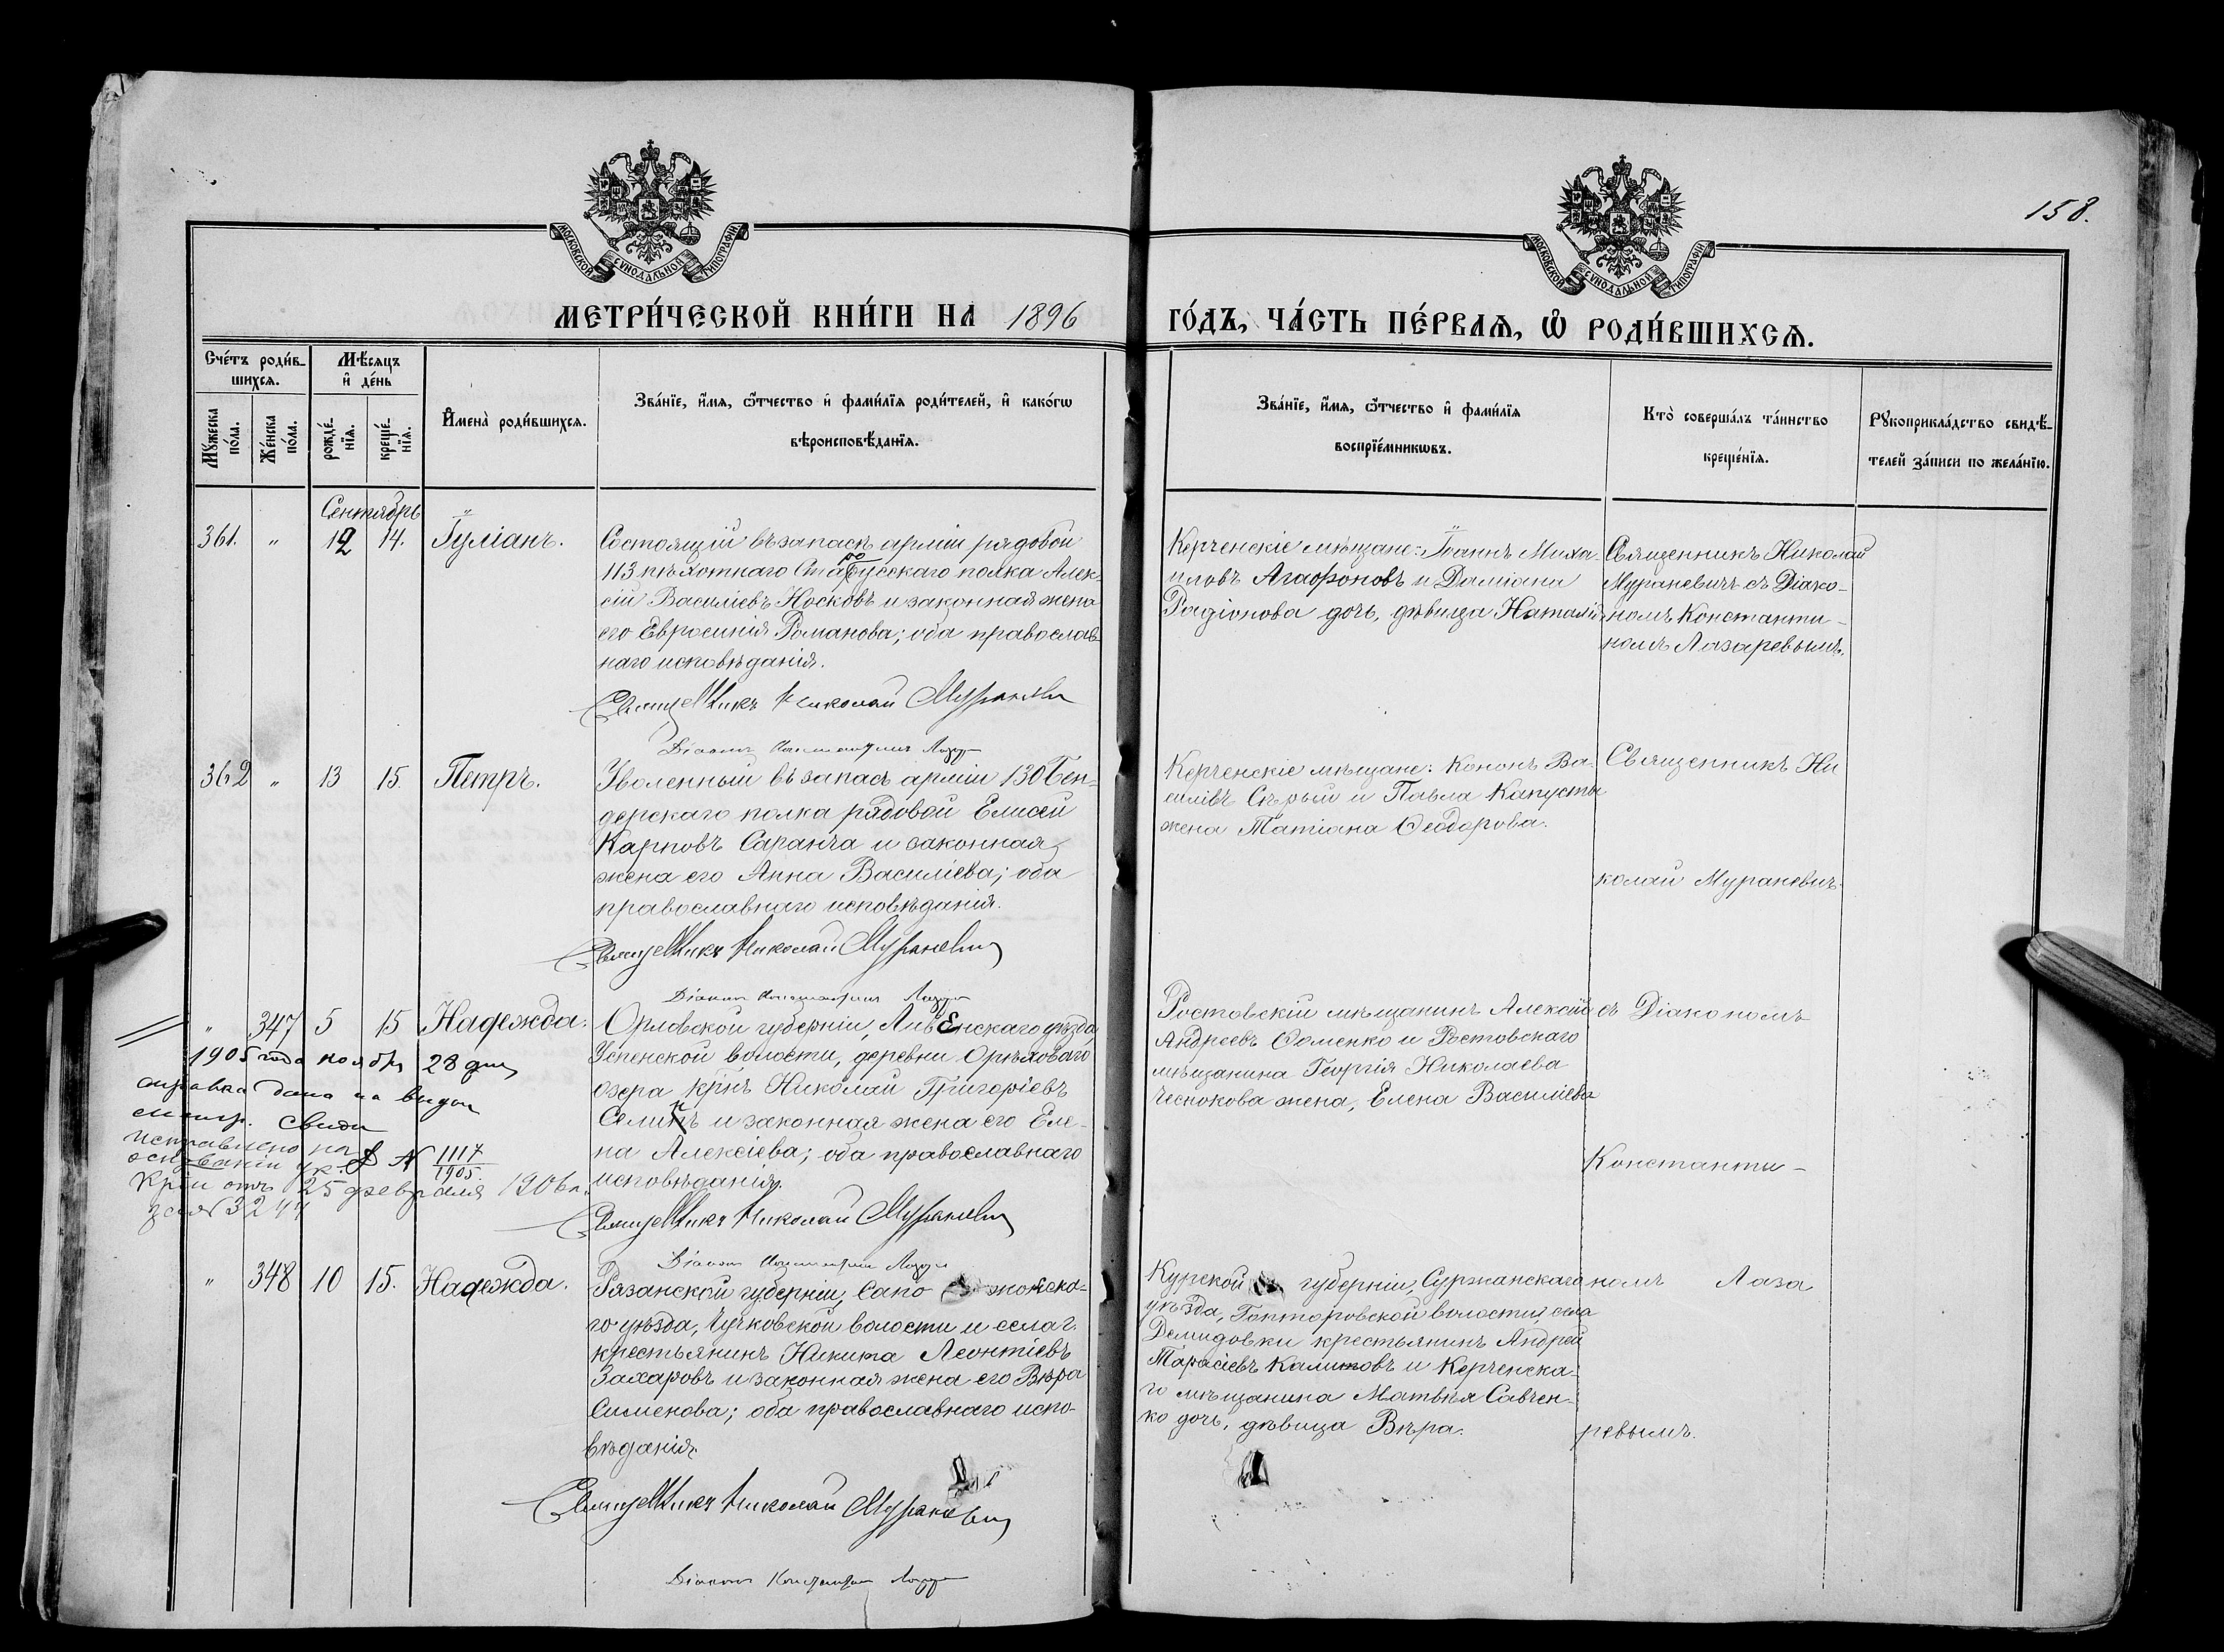 158.
МОСКОВСКОЙ СѴНОДАЛЬНОЙ ТИПОГРАФІИ
МОСКОВСКОЙ СѴНОДАЛЬНОЙ ТИПОГРАФІИ
МЕТРИ́ЧЕСКОЙ КНИ́ГИ НА 1896 ГО́ДЪ, ЧА́СТЬ ПЕ́РВАѦ, Ѽ РОДИ́ВШИХСѦ.
Сче́тъ роди́в-
шихсѧ.
Мѣ́сѧцъ
и҆ де́нь
Мꙋ́жеска
по́ла.
Же́нска
по́ла.
рожде́-
нїѧ.
креще́-
нїѧ.
И҆мена̀ роди́вшихсѧ.
Зва́нїе, и҆́мѧ, ѻ҆́тчество и҆ фами́лїѧ роди́телей, и҆ како́гѡ
вѣроисповѣ́данїѧ.
Зва́нїе, и҆́мѧ, ѻ҆́тчество и҆ фами́лїѧ
воспрїе́мникѡвъ.
Кто̀ соверша́лъ та́инство
креще́нїѧ.
Рꙋкоприкла́дство свидѣ́-
телей за́писи по жела́нїю.
Сентябрь
361. " 12 14. Іуліанъ.
Состоящій въ запасѣ арміи рядовой
113 пѣхотнаго Старорусскаго полка Алек-
сій Василіевъ Носковъ и законная жена
его Евросинія Романова; оба православ-
наго исповѣданія.
Священникъ Николай Мураневичъ
Діаконъ Константинъ Лазаревъ
Керченскіе мѣщане: Іоаннъ Миха-
иловъ Агафоновъ и Даміана
Радіонова дочь, дѣвица Наталія
Священникъ Николай
Мураневичъ съ Діако-
номъ Константи-
номъ Лазаревымъ.
362 " 13 15. Петръ.
Уволенный въ запасъ арміи 130 Бен-
дерскаго полка рядовой Елисей
Карповъ Саранча и законная
жена его Анна Василіева; оба
православнаго исповѣданія.
Священникъ Николай Мураневичъ
Діаконъ Константинъ Лазаревъ
Керченскіе мѣщане: Кононъ Ва-
силівъ Сѣрый и Павла Капусты
жена Татіана Ѳеодорова.
Священникъ Ни
колай Мураневичъ
" 347 5 15 Надежда.
Орловской губерніи, Ливенскаго уѣзда,
Успенской волости, деревни Орѣховаго
озера крнъ Николай Григоріевъ
Селинъ и законная жена его Еле-
на Алексіева; оба православнаго
исповѣданія.
Священникъ Николай Мураневичъ
Діаконъ Константинъ Лазаревъ
1905 года ноября 28 дня
справка дана на выдачу
метр. свид.
№ 1117
1905.
исправлено на
основаніи ук.
отъ 25 февраля 1906 г.
за № 3244
Ростовскій мѣщанинъ Алексій
Андреевъ Ѳоменко и Ростовскаго
мѣщанина Георгія Николаева
Чеснокова жена, Елена Василіева
съ Діакономъ
Константи-
" 348 10 15. Надежда.
Рязанской губерніи, Сапожковска-
го уѣзда, Чучковской волости и села
крестьянинъ Никита Леонтіевъ
Захаровъ и законная жена его Вѣра
Симеонова; оба православнаго испо-
вѣданія.
Священникъ Николай Мураневичъ
Діаконъ Константинъ Лазаревъ
Курской губерніи, Суржанскаго
уѣзда, волости, села
Демидовки крестьянинъ Андрей
Тарасіевъ Калитовъ и Керченска-
го мѣщанина Матвѣя Савчен-
ко дочь, дѣвица Вѣра.
номъ Лаза
ревымъ.